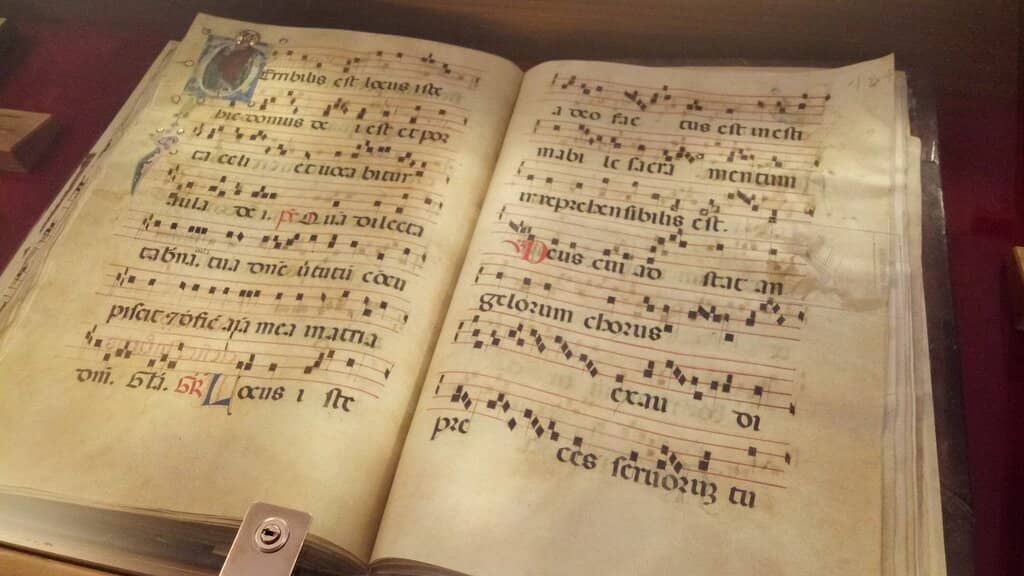 Terribilis est locus iste
hic domus de i est et por
ta celi et uoca bitur
aula de i. ps. Qua dilecta
tabnā. tua dnē ūtutū cōcu
piscit ⁊ dficē aīa mea in atria
dnī. Glā. GR Locus i ste
a deo fac tus est inesti
mabi le sacra mentum
irreprehensibilis est.
Deus cui ad stat an
gelorum chorus
exau di
pre
ces seruoruꝫ tu